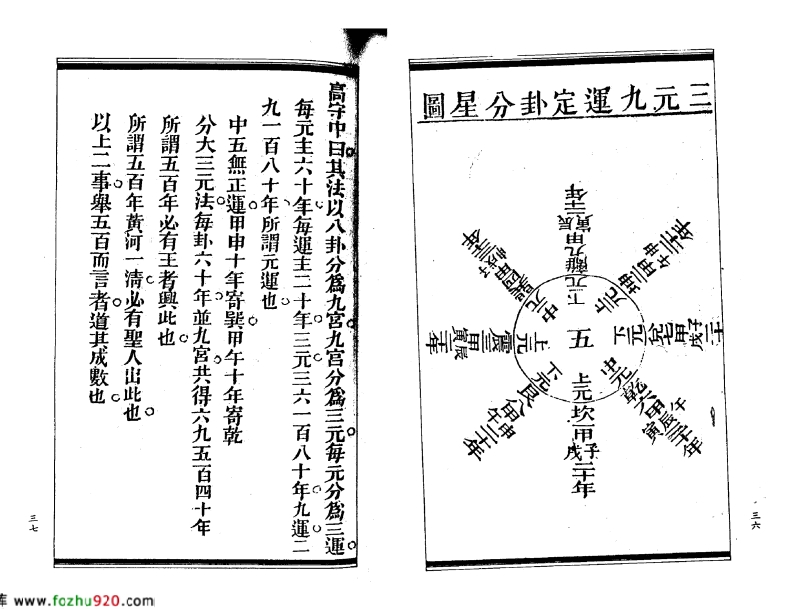 三元九運定卦分星圖
下元離九甲寅辰二十年
上元坤二甲申午二十年
下元兌七甲戌子二十年
中元乾六甲寅辰午二十年
上元坎一甲戌子二十年
下元艮八甲申午二十年
上元震三甲寅辰二十年
中元巽四甲
五
三六
高守中曰其法以八卦分爲九宮九宮分爲三元每元分爲三運
每元主六十年每運主二十年三元三六一百八十年九運二
九一百八十年所謂元運也
中五無正運甲申十年寄巽甲午十年寄乾
分大三元法每卦六十年並九宮共得六九五百四十年
所謂五百年必有王者興此也
所謂五百年黃河一淸必有聖人出此也
以上二事舉五百而言者道其成數也
三七
库 www.fozhu920.com